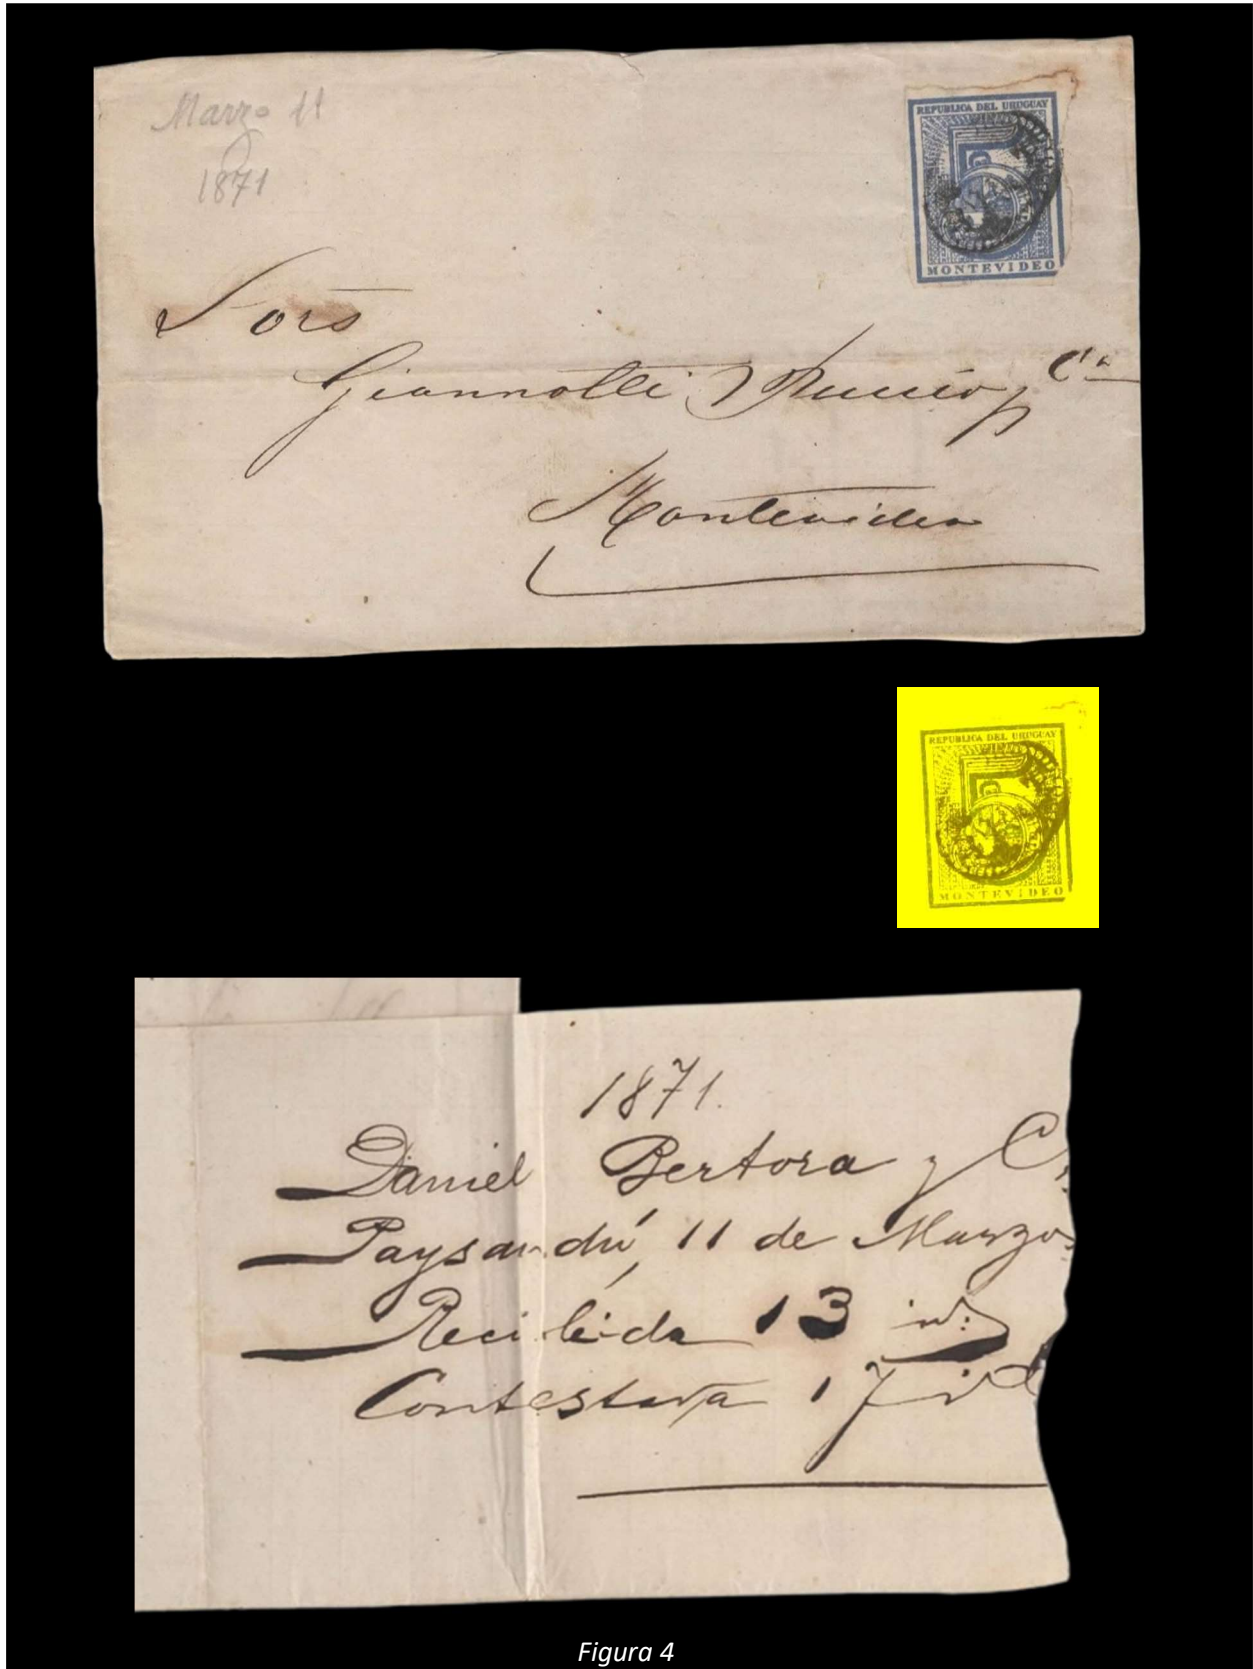 Marzo 11
1871
REPUBLICA DEL URUGUAY
MONTEVIDEO
Sors
Giannotti y Cia
Montevideo
REPUBLICA DEL URUGUAY
MONTEVIDEO
1871.
Daniel Bertora y C
Paysandú, 11 de Marzo
Recibida 13 id:
Contestada 17 id
Figura 4